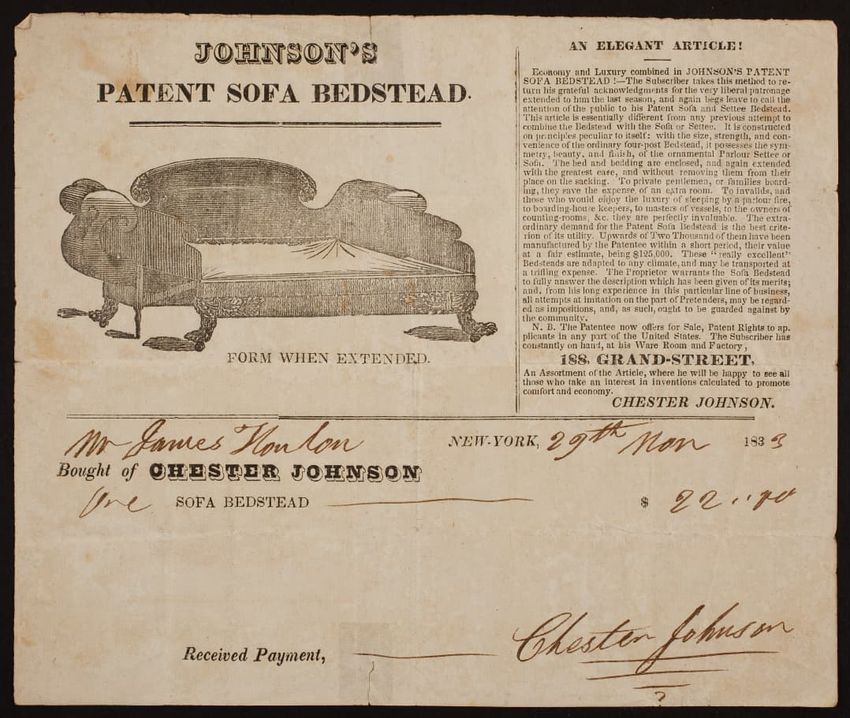 JOHNSON'S
PATENT SOFA BEDSTEAD.
FORM WHEN EXTENDED.
AN ELEGANT ARTICLE!
Economy and Luxury combined in JOHNSON'S PATENT
SOFA BEDSTEAD!—The Subscriber takes this method to re-
turn his grateful acknowledgments for the very liberal patronage
extended to him the last season, and again begs leave to call the
attention of the public to his Patent Sofa and Settee Bedstead.
This article is essentially different from any previous attempt to
combine the Bedstead with the Sofa or Settee. It is constructed
on principles peculiar to itself: with the size, strength, and con-
venience of the ordinary four-post Bedstead, it possesses the sym-
metry, beauty, and finish, of the ornamental Parlour Settee or
Sofa. The bed and bedding are enclosed, and again extended
with the greatest care, and without removing them from their
place on the sacking. To private gentlemen, or families board-
ing, they save the expense of an extra room. To invalids, and
those who would enjoy the luxury of sleeping by a parlour fire,
to boarding-house keepers, to masters of vessels, to the owners of
counting-rooms, &c. they are perfectly invaluable. The extra-
ordinary demand for the Patent Sofa Bedstead is the best crite-
rion of its utility. Upwards of Two Thousand of them have been
manufactured by the Patentee within a short period, their value
at a fair estimate, being $125,000. These "really excellent"
Bedsteads are adapted to any climate, and may be transported at
a trifling expense. The Proprietor warrants the Sofa Bedstead
to fully answer the description which has been given of its merits;
and, from his long experience in this particular line of business,
all attempts at imitation on the part of Pretenders, may be regard-
ed as impositions, and, as such, ought to be guarded against by
the community.
N. B. The Patentee now offers for Sale, Patent Rights to ap-
plicants in any part of the United States. The Subscriber has
constantly on hand, at his Ware Room and Factory,
188, GRAND-STREET,
An Assortment of the Article, where he will be happy to see all
those who take an interest in inventions calculated to promote
comfort and economy.
CHESTER JOHNSON.
Mr James NEW-YORK, 29th Nov 1833
Bought of CHESTER JOHNSON
One SOFA BEDSTEAD $ 22..00
Received Payment, Chester Johnson